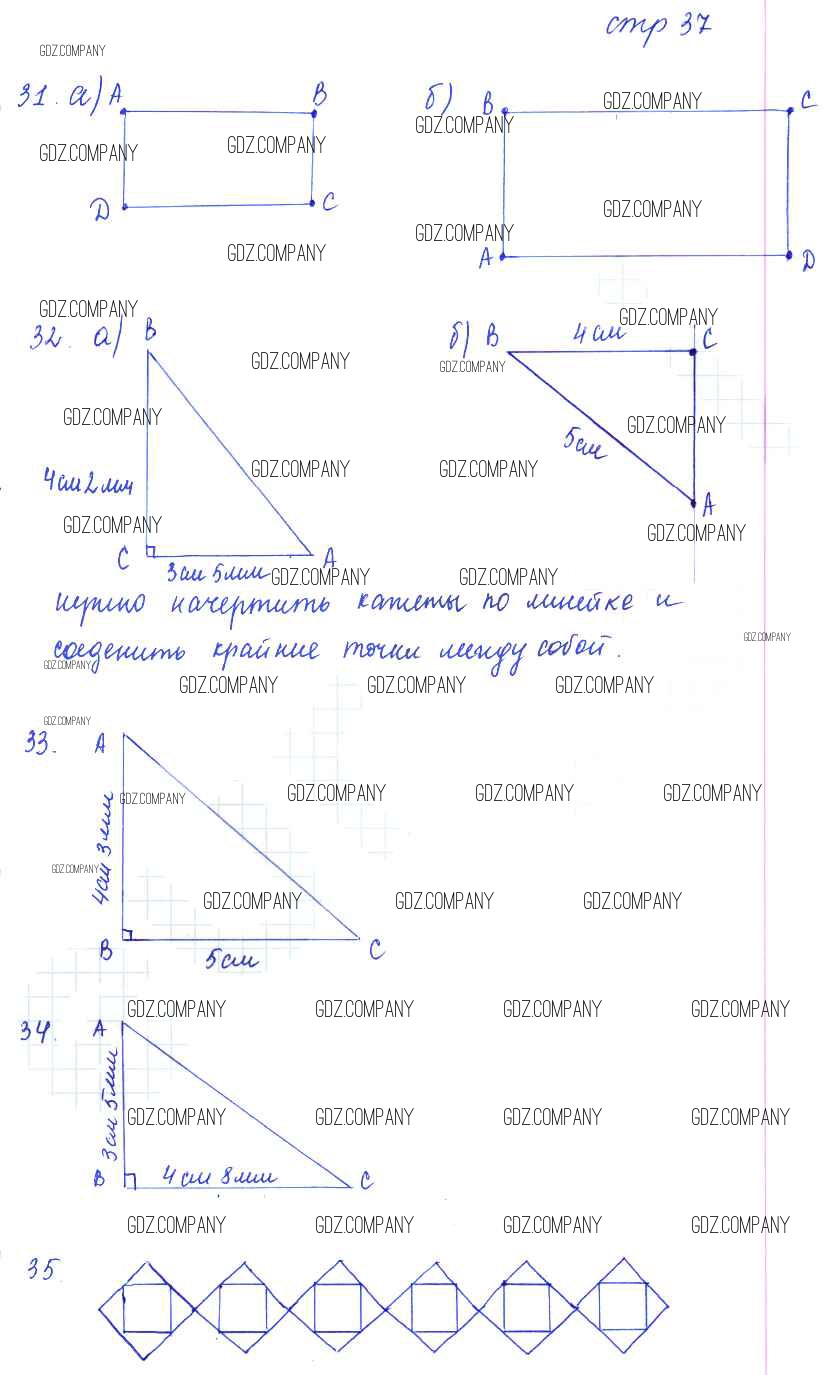 стр 37
GDZ.COMPANY
31. а) A B
б) B C
GDZ.COMPANY
GDZ.COMPANY
GDZ.COMPANY GDZ.COMPANY
D C
GDZ.COMPANY
GDZ.COMPANY
GDZ.COMPANY
A D
GDZ.COMPANY
GDZ.COMPANY
32. а) B
б) B 4 см C
GDZ.COMPANY
GDZ.COMPANY
GDZ.COMPANY
GDZ.COMPANY
5 см
4 см 2 мм
GDZ.COMPANY
GDZ.COMPANY
GDZ.COMPANY
A
GDZ.COMPANY
C A
3 см 5 мм
GDZ.COMPANY
GDZ.COMPANY
нужно начертить катеты по линейке и
соеденить крайние точки между собой.
GDZ.COMPANY
GDZ.COMPANY
GDZ.COMPANY GDZ.COMPANY GDZ.COMPANY
GDZ.COMPANY
33. A
4 см 3 мм
GDZ.COMPANY GDZ.COMPANY GDZ.COMPANY GDZ.COMPANY
GDZ.COMPANY
GDZ.COMPANY GDZ.COMPANY GDZ.COMPANY
B 5 см C
GDZ.COMPANY GDZ.COMPANY GDZ.COMPANY GDZ.COMPANY
34. A
3 см 5 мм
GDZ.COMPANY GDZ.COMPANY GDZ.COMPANY GDZ.COMPANY
B 4 см 8 мм C
GDZ.COMPANY GDZ.COMPANY GDZ.COMPANY GDZ.COMPANY
35